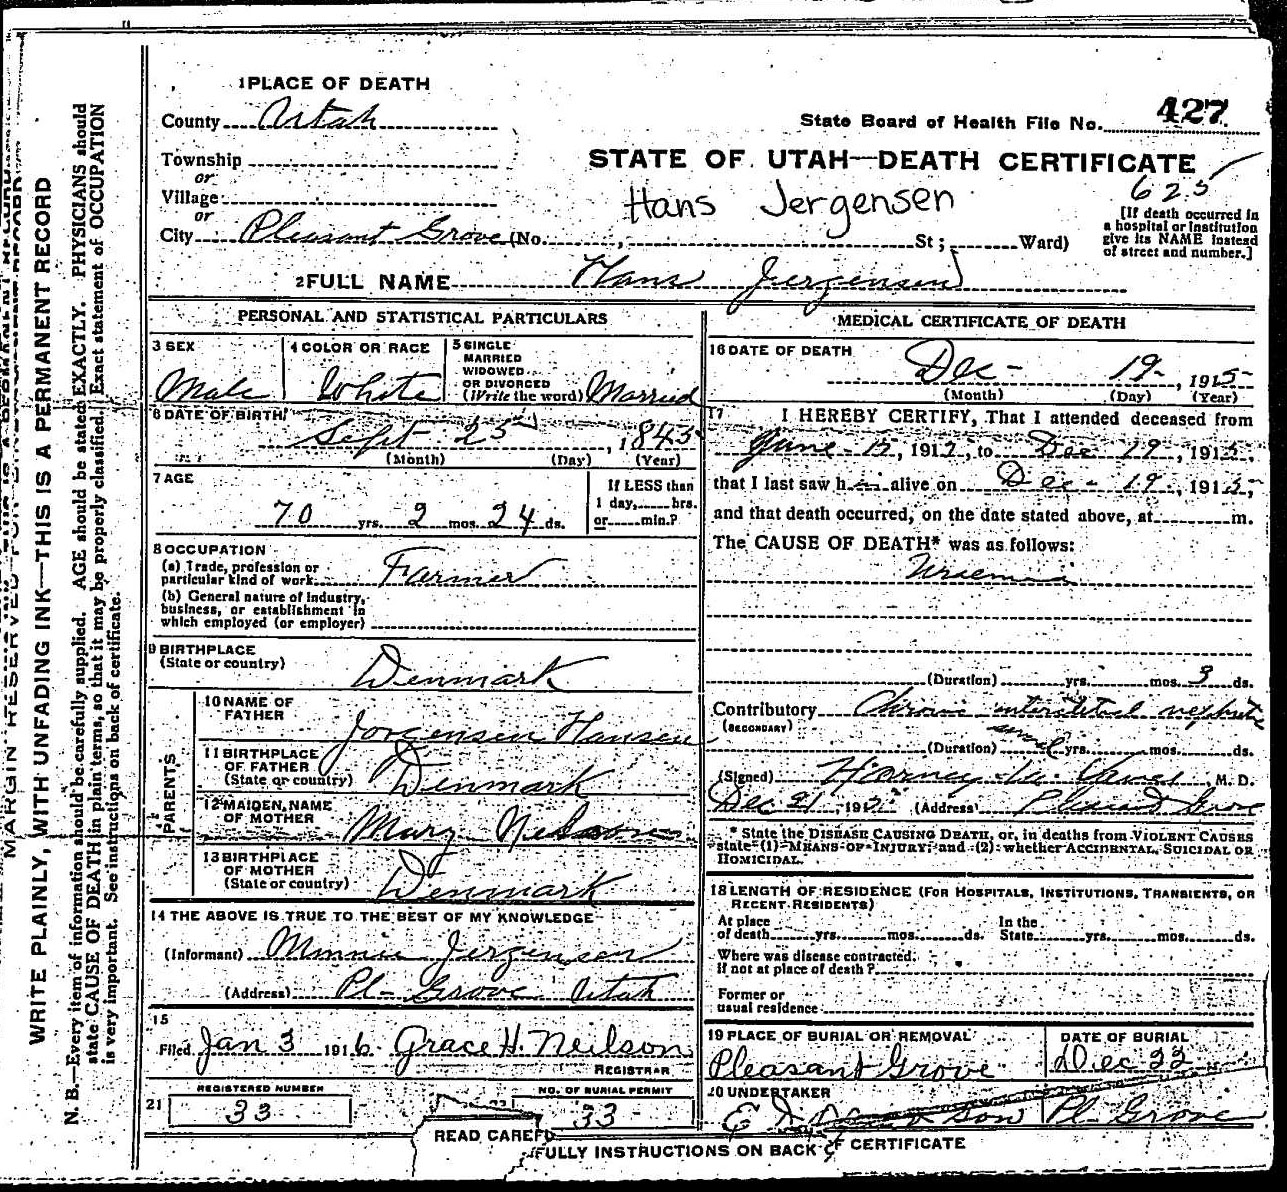 MARGIN RESERVED FOR
WRITE PLAINLY, WITH UNFADING INK—THIS IS A PERMANENT RECORD
N. B.—Every item of information should be carefully supplied. AGE should be stated EXACTLY. PHYSICIANS should
state CAUSE OF DEATH in plain terms, so that it may be properly classified. Exact statement of OCCUPATION
is very important. See instructions on back of certificate.
1 PLACE OF DEATH
County Utah
State Board of Health File No. 427
Township
or
STATE OF UTAH—DEATH CERTIFICATE
Village
or
Hans Jergensen
625
City Pleasant Grove (No. , St ; Ward)
[If death occurred in
a hospital or institution
give its NAME instead
of street and number.]
2 FULL NAME Hans Jergensen
PERSONAL AND STATISTICAL PARTICULARS
3 SEX
Male
4 COLOR OR RACE
White
5 SINGLE
MARRIED
WIDOWED
OR DIVORCED
(Write the word) Married
6 DATE OF BIRTH
Sept 25 , 1843
(Month) (Day) (Year)
7 AGE
70 yrs. 2 mos. 24 ds.
If LESS than
1 day, hrs.
or min.?
8 OCCUPATION
(a) Trade, profession or
particular kind of work Farmer
(b) General nature of industry,
business, or establishment in
which employed (or employer)
9 BIRTHPLACE
(State or country) Denmark
PARENTS
10 NAME OF
FATHER Jorgensen Hansen
11 BIRTHPLACE
OF FATHER
(State or country) Denmark
12 MAIDEN NAME
OF MOTHER Mary Nelson
13 BIRTHPLACE
OF MOTHER
(State or country) Denmark
14 THE ABOVE IS TRUE TO THE BEST OF MY KNOWLEDGE
(Informant) Minnie Jergensen
(Address) Pl- Grove Utah
15
Filed Jan 3 1916 Grace H. Neilson
REGISTRAR
REGISTERED NUMBER
21 33
NO. OF BURIAL PERMIT
33
MEDICAL CERTIFICATE OF DEATH
16 DATE OF DEATH
Dec - 19 - , 1915
(Month) (Day) (Year)
17
I HEREBY CERTIFY, That I attended deceased from
June - 15 , 191 , to Dec 19 , 1915,
that I last saw him alive on Dec - 19 , 1915,
and that death occurred, on the date stated above, at m.
The CAUSE OF DEATH* was as follows:
Uraemia
(Duration) yrs. mos. 3 ds.
Contributory Chronic interstitial nephritis
(SECONDARY)
(Duration) several yrs. mos. ds.
(Signed) Harvey , M. D.
Dec 21 , 191 (Address) Pleasant Grove
* State the DISEASE CAUSING DEATH, or, in deaths from VIOLENT CAUSES
state (1) MEANS OF INJURY; and (2) whether ACCIDENTAL, SUICIDAL OR
HOMICIDAL.
18 LENGTH OF RESIDENCE (FOR HOSPITALS, INSTITUTIONS, TRANSIENTS, OR
RECENT RESIDENTS)
At place
of death yrs. mos. ds.
In the
State yrs. mos. ds.
Where was disease contracted,
if not at place of death?
Former or
usual residence
19 PLACE OF BURIAL OR REMOVAL
Pleasant Grove
DATE OF BURIAL
Dec 22
20 UNDERTAKER
Son Pl- Grove
READ CAREFULLY INSTRUCTIONS ON BACK OF CERTIFICATE